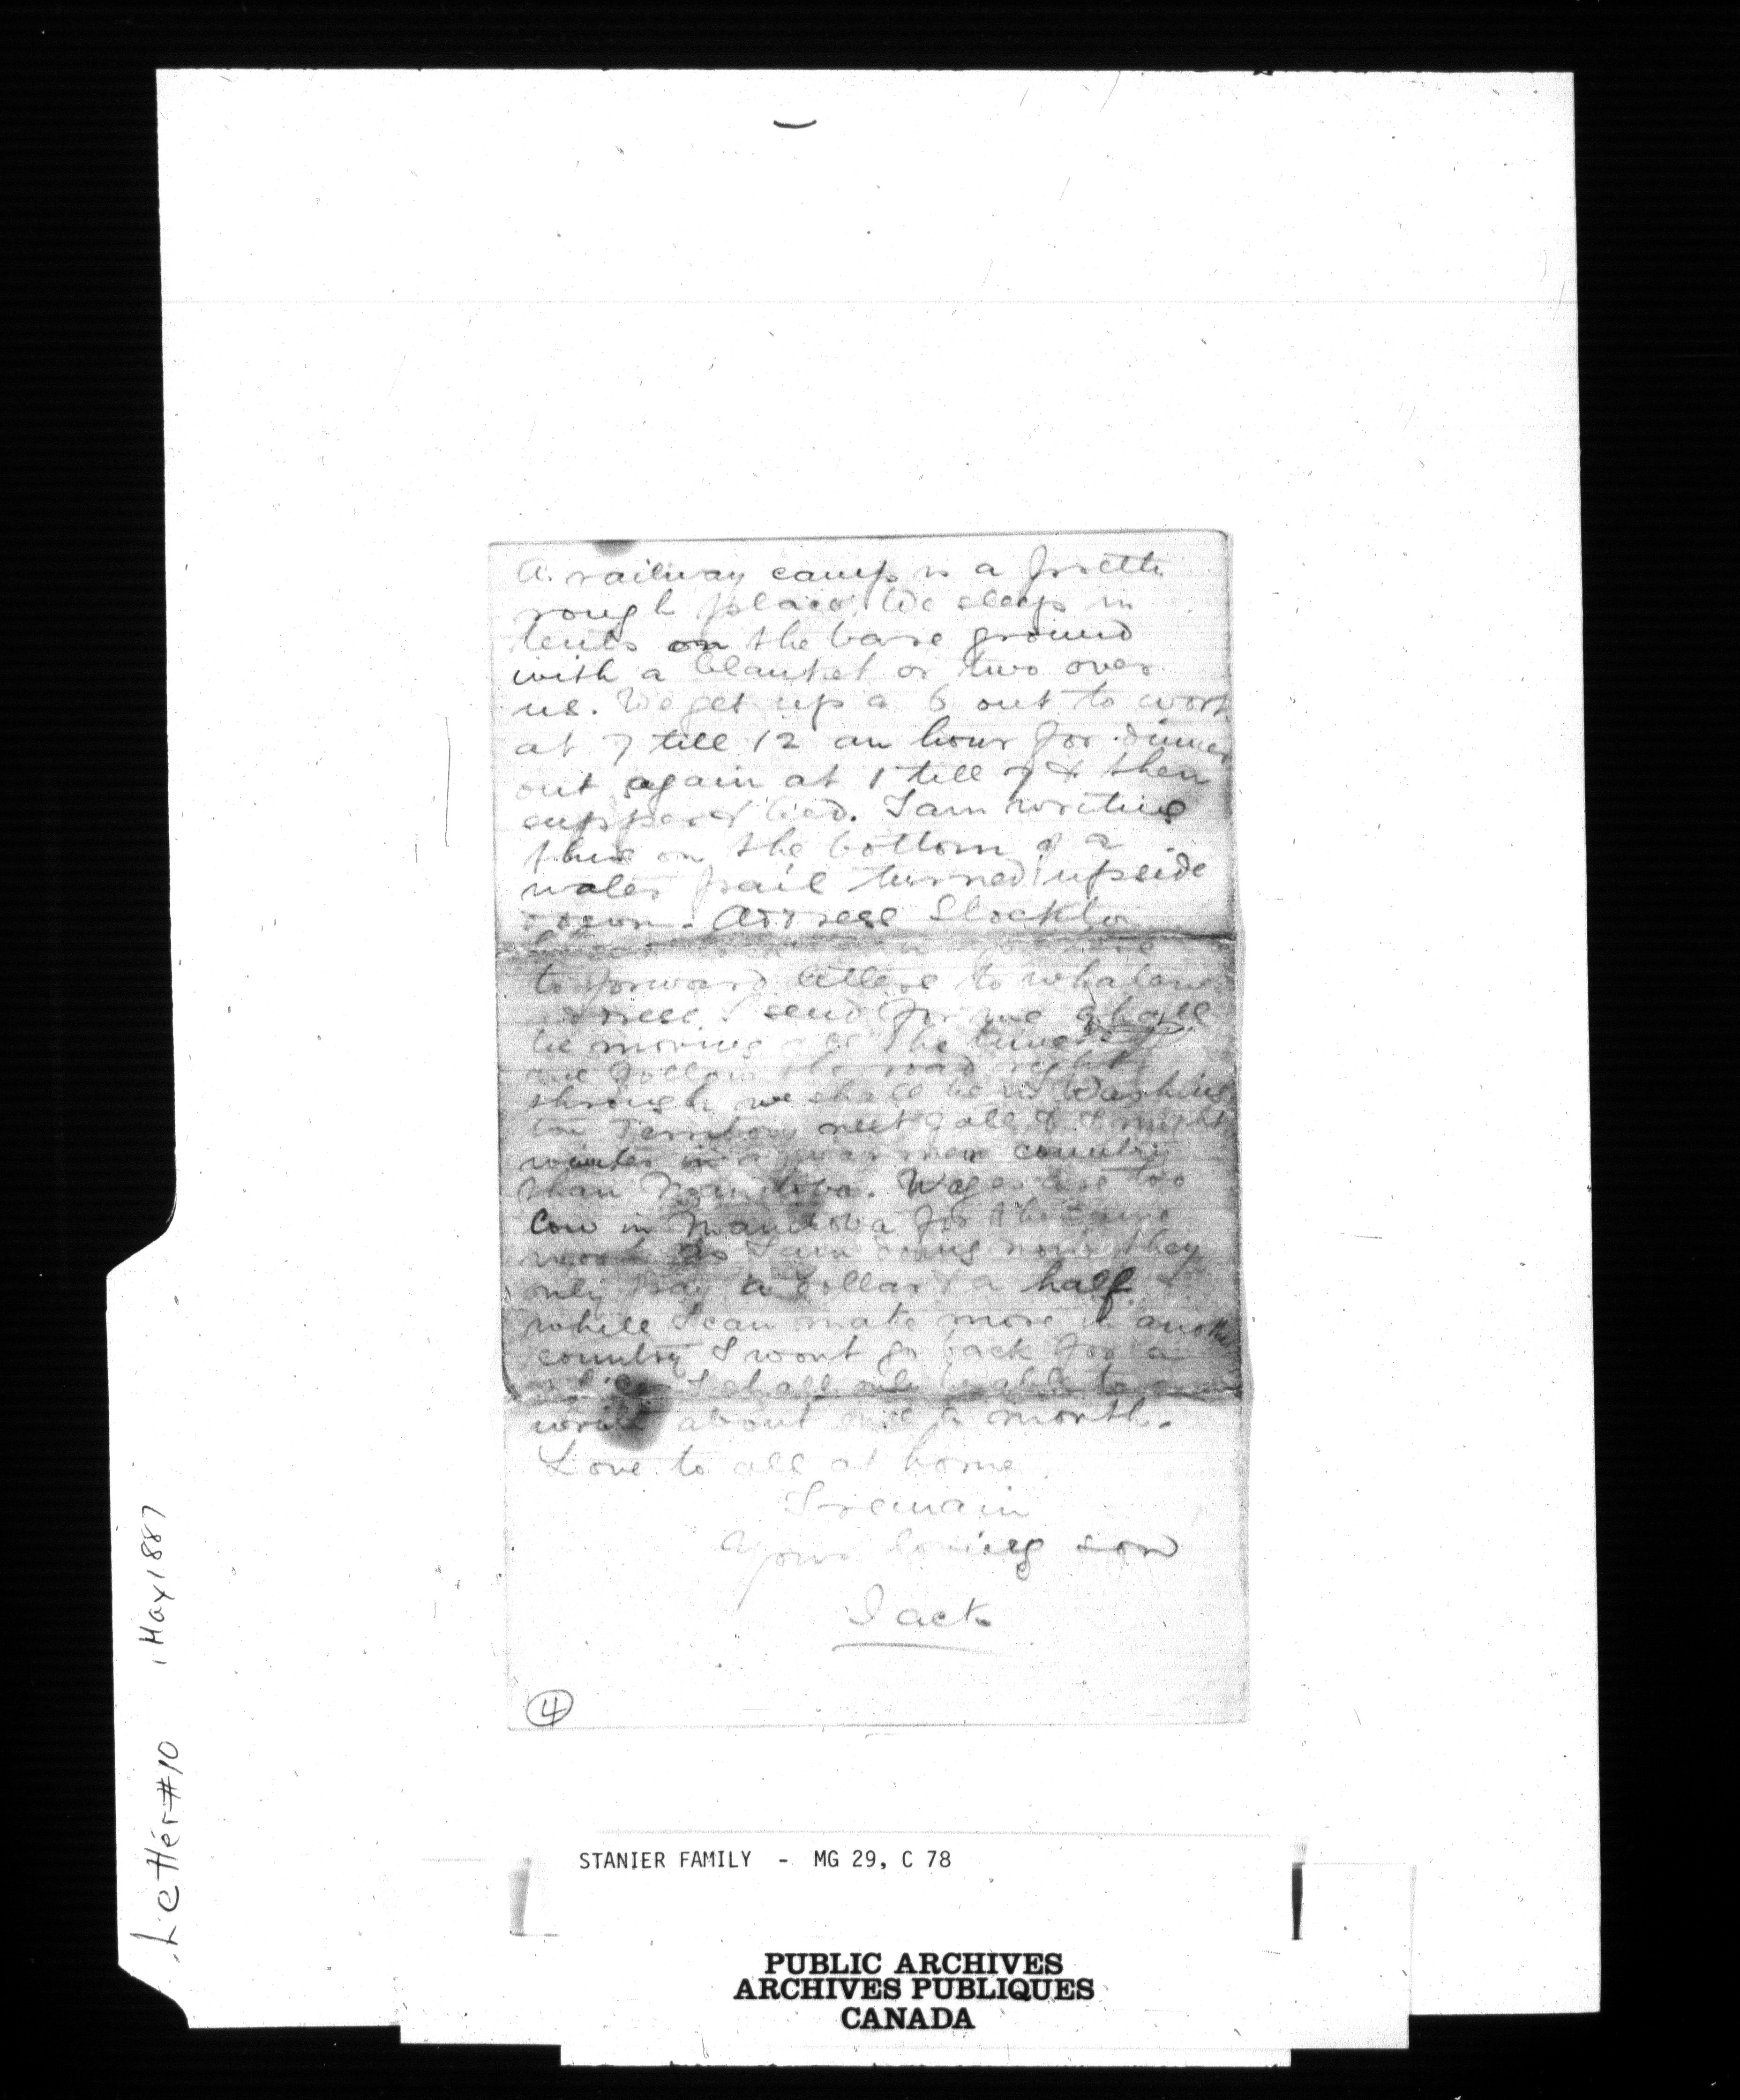 A railway camp is a pretty
rough place. We sleep in
tents on the bare ground
with a blanket or two over
us. We get up a 6 out to work
at 7 till 12 an hour for dinner
out again at 1 till 7 & then
supper & bed. I am writing
this on the bottom of a
water pail turned upside
down. Address Stockton
to forward letters to
I send for me shall
be moving all the time
we follow the road right
through we shall be in Washing
ton Territory next fall & I might
winter in a warmer country
than Manitoba. Wages are too
low in Manitoba for the same
work as I am doing now they
only pay a dollar & a half
while I can make more in another
country I wont go back for a
I shall only be able to
write about once a month.
Love to all at home
I remain
Your loving son
Jack
4
Letter #10 1 May 1887
STANIER FAMILY - MG 29, C 78
PUBLIC ARCHIVES
ARCHIVES PUBLIQUES
CANADA